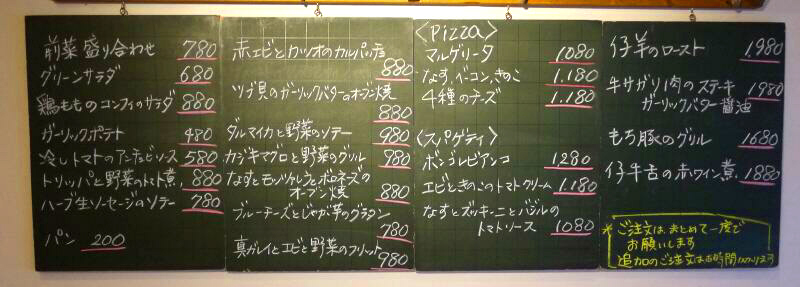 前菜盛り合わせ 780
グリーンサラダ 680
鶏もものコンフィのサラダ 880
ガーリックポテト 480
冷しトマトのアンチョビソース 580
トリッパと野菜のトマト煮 880
ハーブ生ソーセージのソテー 780
パン 200
赤エビとカツオのカルパッチョ
880
ツブ貝のガーリックバターのオーブン焼
880
ダルマイカと野菜のソテー 980
カジキマグロと野菜のグリル 980
なすとモッツァレラとボロネーズの
オーブン焼 880
ブルーチーズとじゃが芋のグラタン
780
真ガレイとエビと野菜のフリット
980
<Pizza>
マルゲリータ 1080
なす、ベーコン、きのこ 1.180
4種のチーズ 1.180
<スパゲティ>
ボンゴレビアンコ 1280
エビときのこのトマトクリーム 1.180
なすとズッキーニとバジルの
トマトソース 1080
仔羊のロースト 1980
牛サガリ肉のステーキ 1980
ガーリックバター醤油
もち豚のグリル 1680
仔牛舌の赤ワイン煮 1880
*ご注文は、まとめて一度で
お願いします
追加のご注文はお時間かかります